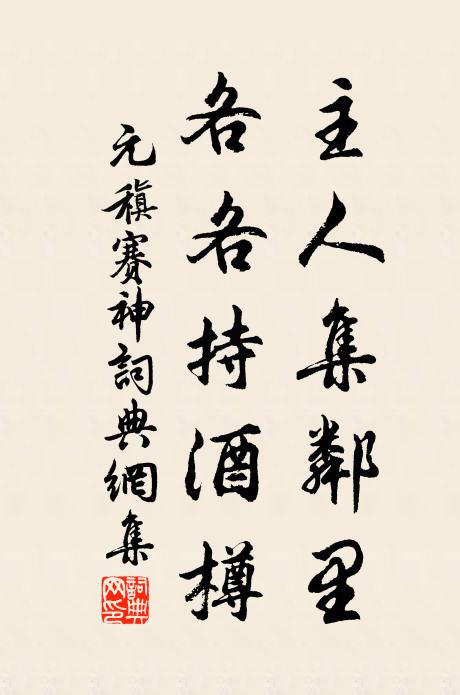 主人集鄰里
各各持酒樽
元稹賽神詞典網集
詞典網印